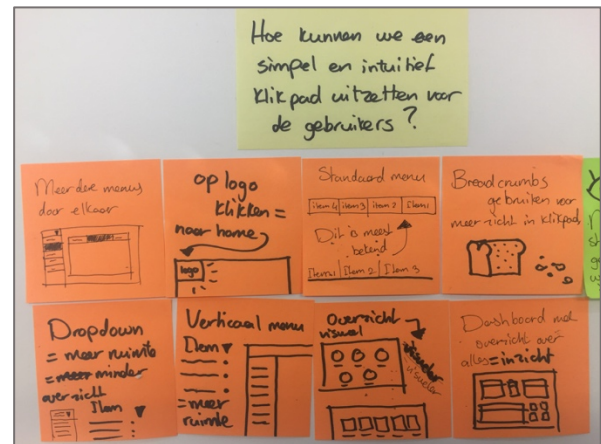 Hoe kunnen we een
simpel en intuitief
klikpad uitzetten voor
de gebruikers?
Meerdere menus
door elkaar
op logo
klikken =
naar home
logo
Standaard menu
item 4 item 3 item 2 Item 1
Dit is meest
bekend
Item 1 Item 2 Item 3
Breadcrumbs
gebruiken voor
meer zicht in klikpad
Dropdown
= meer ruimte
= meer minder
overzicht
Item
Verticaal menu
Item
= meer
ruimte
Overzicht
visual
visueler
visueler
Dashboard met
overzicht over
alles = inzicht